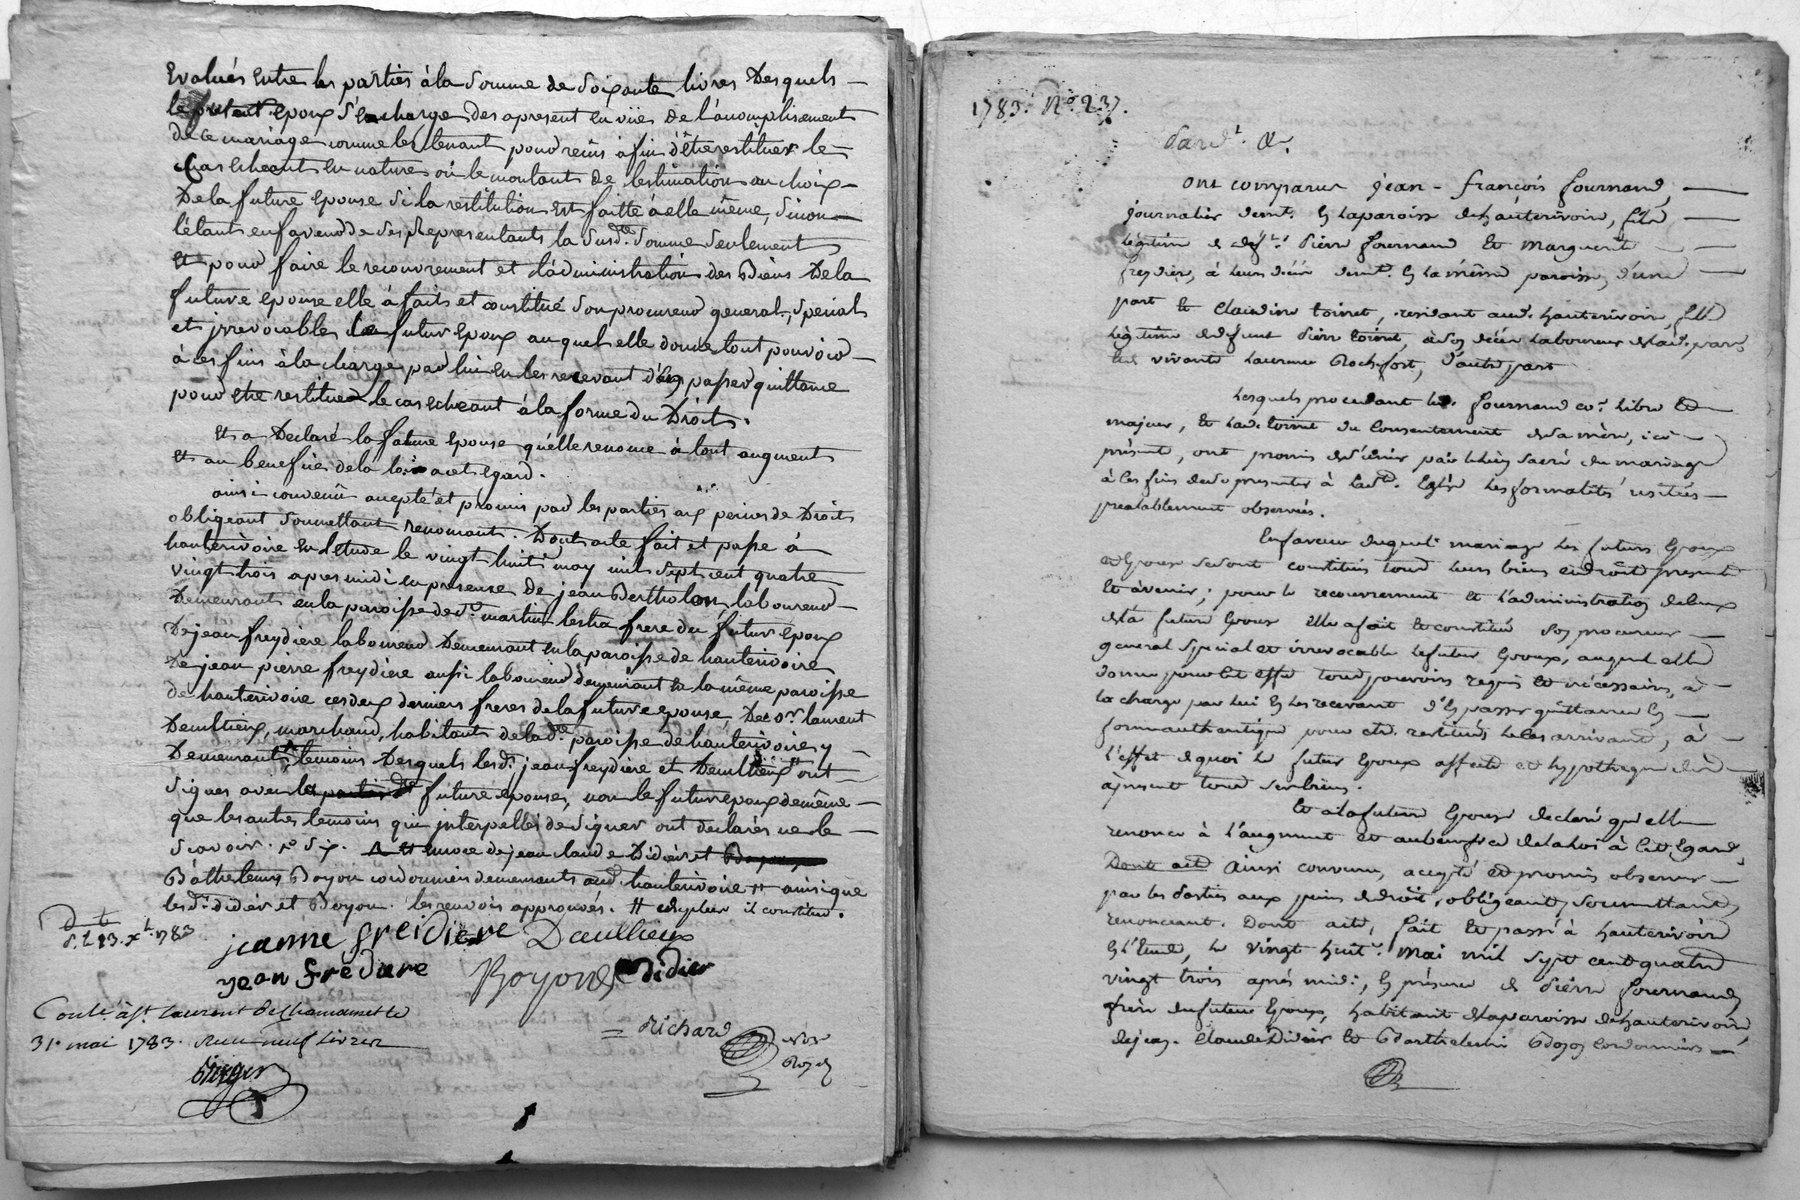 Evalués entre les parties à la Somme de Soixante livres Desquels
le futur Epoux S'encharge des apresent en vüe de l'acomplisement
de ce mariage comme les tenant pour reçus afin d'être restituer le
Cas echeant en nature où le montant de lestimation au choix
De la future Epouse Si la restitution est faitte à elle même, Sinon
l'étant en faveur de Ses Representants la Susd.e Somme Seulement
Et pour faire le recouvrement et l'administration des Biens De la
future epouse elle à fait et constitué Son procureur general, Special
et jrrevocable Le futur Epoux auquel elle donne tout pouvoir
à ces fins à la charge par lui en les recevant d'en passer quittance
pour etre restitué le cas echeant à la forme du Droit.
Et a Declaré la future Epouse qu'elle renonce à tout augment
et au benefice de la loi a cet egard.
ainsi convenü accepté et promis par les parties aux peines de Droit
obligeant Soumettant renonçant. Dont acte fait et passé à
hauterivoire En l'etude le vingt huit may mil Sept cent quatre
vingt trois apres midi en presence de jean Bertholon, laboureur
Demeurant en la paroisse de S.t martin lestra frere du futur epoux
De jean freydiere laboureur Demeurant en la paroisse de hauterivoire
De jean pierre freydiere aussi laboureur demeurant en la même paroisse
de hauterivoire ces deux derniers freres de la future epouse, De S.r laurent
Deullieux, marchand, habitants de la d.e paroisse de hauterivoire y
Demeurants temoins Desquels lesd. jean freydiere et Deullieux ont
Signés avec la future epouse, non le futur epoux de même
que les autres temoins qui jnterpellés de Signer ont declarés ne le
Sçavoir. encore de jean claude Didier et
Bathelemy Boyon cordonniers demeurants aud. hauterivoire # ainsi que
lesd. didier et Boyon. les renvois approuvés. #
jeanne freidiere Deullieux
jean fredière Boyon Didier
Conté. à S.t Laurent de Chamousset le
31. mai 1783. Reçu neuf livres
Richard
1783. N.o 237.
Pard.t &.
Ont comparus jean-françois fournand,
journalier demt. en la paroisse de hauterivoire, fils
légitime de déf.t Pierre fournand et Marguerite
freydier, à leur décès demt. en la même paroisse, d'une
part et Claudine toinet, residant aud. hauterivoire, fille
légitime de defunt Pierre toinet, à son décès laboureur de lad. parr.
et de vivante Laurence Rochefort, d'autre part
Lesquels procedant led. fournand co.e libre et
majeur, et lad. toinet du consentement de sa mère, ici
présente, ont promis de s'unir par le lien sacré du mariage
à ces fins de se presenter à lad. Eglise les formalités usitées
préalablement observées.
En faveur duquel mariage les futurs Epoux
et Epouse se sont constitués tous leurs biens et droits presents
et à venir; pour le recouvrement et l'administration de ceux
de la future Epouse elle a fait et constitué son procureur
general special et irrevocable le futur Epoux, auquel elle
donne pour cet effet tous pouvoirs requis et nécessaires, à
la charge par lui en les recevant d'en passer quittance en
forme authentique pour etre restitués le cas arrivant, à
l'effet de quoi le futur Epoux affecte et hypotheque dès à
àprésent tous ses biens.
Et a la future Epouse declaré qu'elle
renonce à l'augment et au benefice de la loi à cet Egard,
Dont acte Ainsi convenu, accepté et promis observer
par les Parties aux peines de droit, obligeant, soumettant,
renonceant. Dont acte, fait et passé à hauterivoire
En l'Etude, le vingt huit. mai mil sept cent quatre
vingt trois après midi, En présence de Pierre fournand,
frère du futur Epoux, habitant de la paroisse de hauterivoire
de jean Claude Didier et Barthelemi Boyon Cordonniers